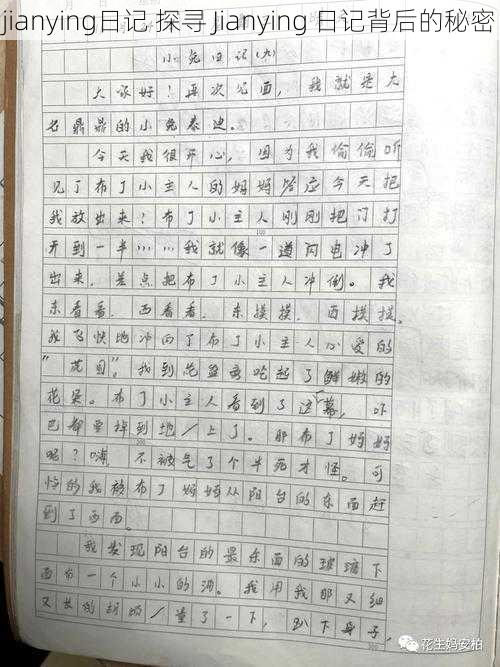 jianying日记 探寻 Jianying 日记背后的秘密
小兔日记(九)
大家好！再次见面，我就是大
名鼎鼎的小兔泰迪。
今天我很开心，因为我偷偷听
见了布丁小主人的妈妈答应今天把
我放出来？布丁小主人刚刚把门打
开到一半……我就像一道闪电冲了
出来，差点把布丁小主人冲倒。我
东看看，西看看，东摸摸，西摸摸。
我飞快地冲向了布丁小主人心爱的
我到花盆旁吃起了鲜嫩的
花朵。布丁小主人看到了这幕，吓
巴都要掉到地上了。那布丁妈妈
呢？嗨，不被气了个半死才怪。可
怜的我被布丁妈妈从阳台的东面赶
到了西面。
我发现阳台的最东面的玻璃下
面有一个小小的洞。我用我那又细
又长的胡须量了一下，趴下身子，
花生妈安柏